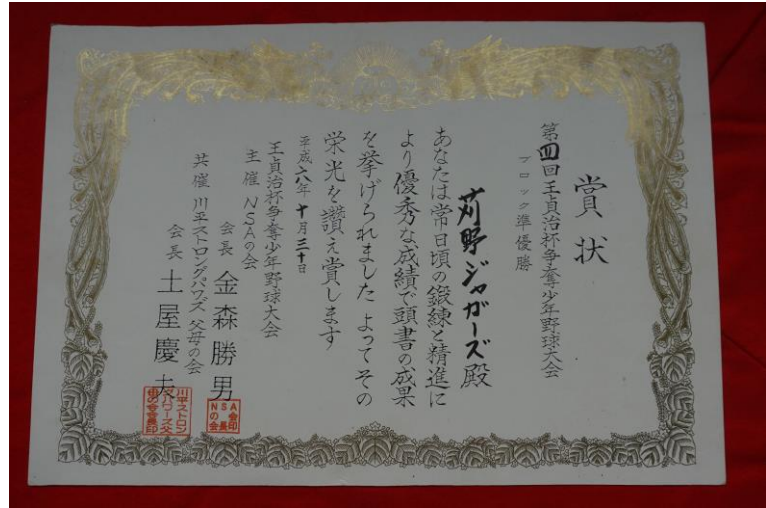 賞状
第四回王貞治杯争奪少年野球大会
ブロック準優勝
苅野ジャガーズ殿
あなたは常日頃の鍛練と精進に
より優秀な成績で頭書の成果
を挙げられました よってその
栄光を讃え賞します
平成六年十月三十日
王貞治杯争奪少年野球大会
主催 NSAの会
会長 金森勝男
共催 川平ストロングパワーズ 父母の会
会長 土屋慶夫
NSAの会会長印